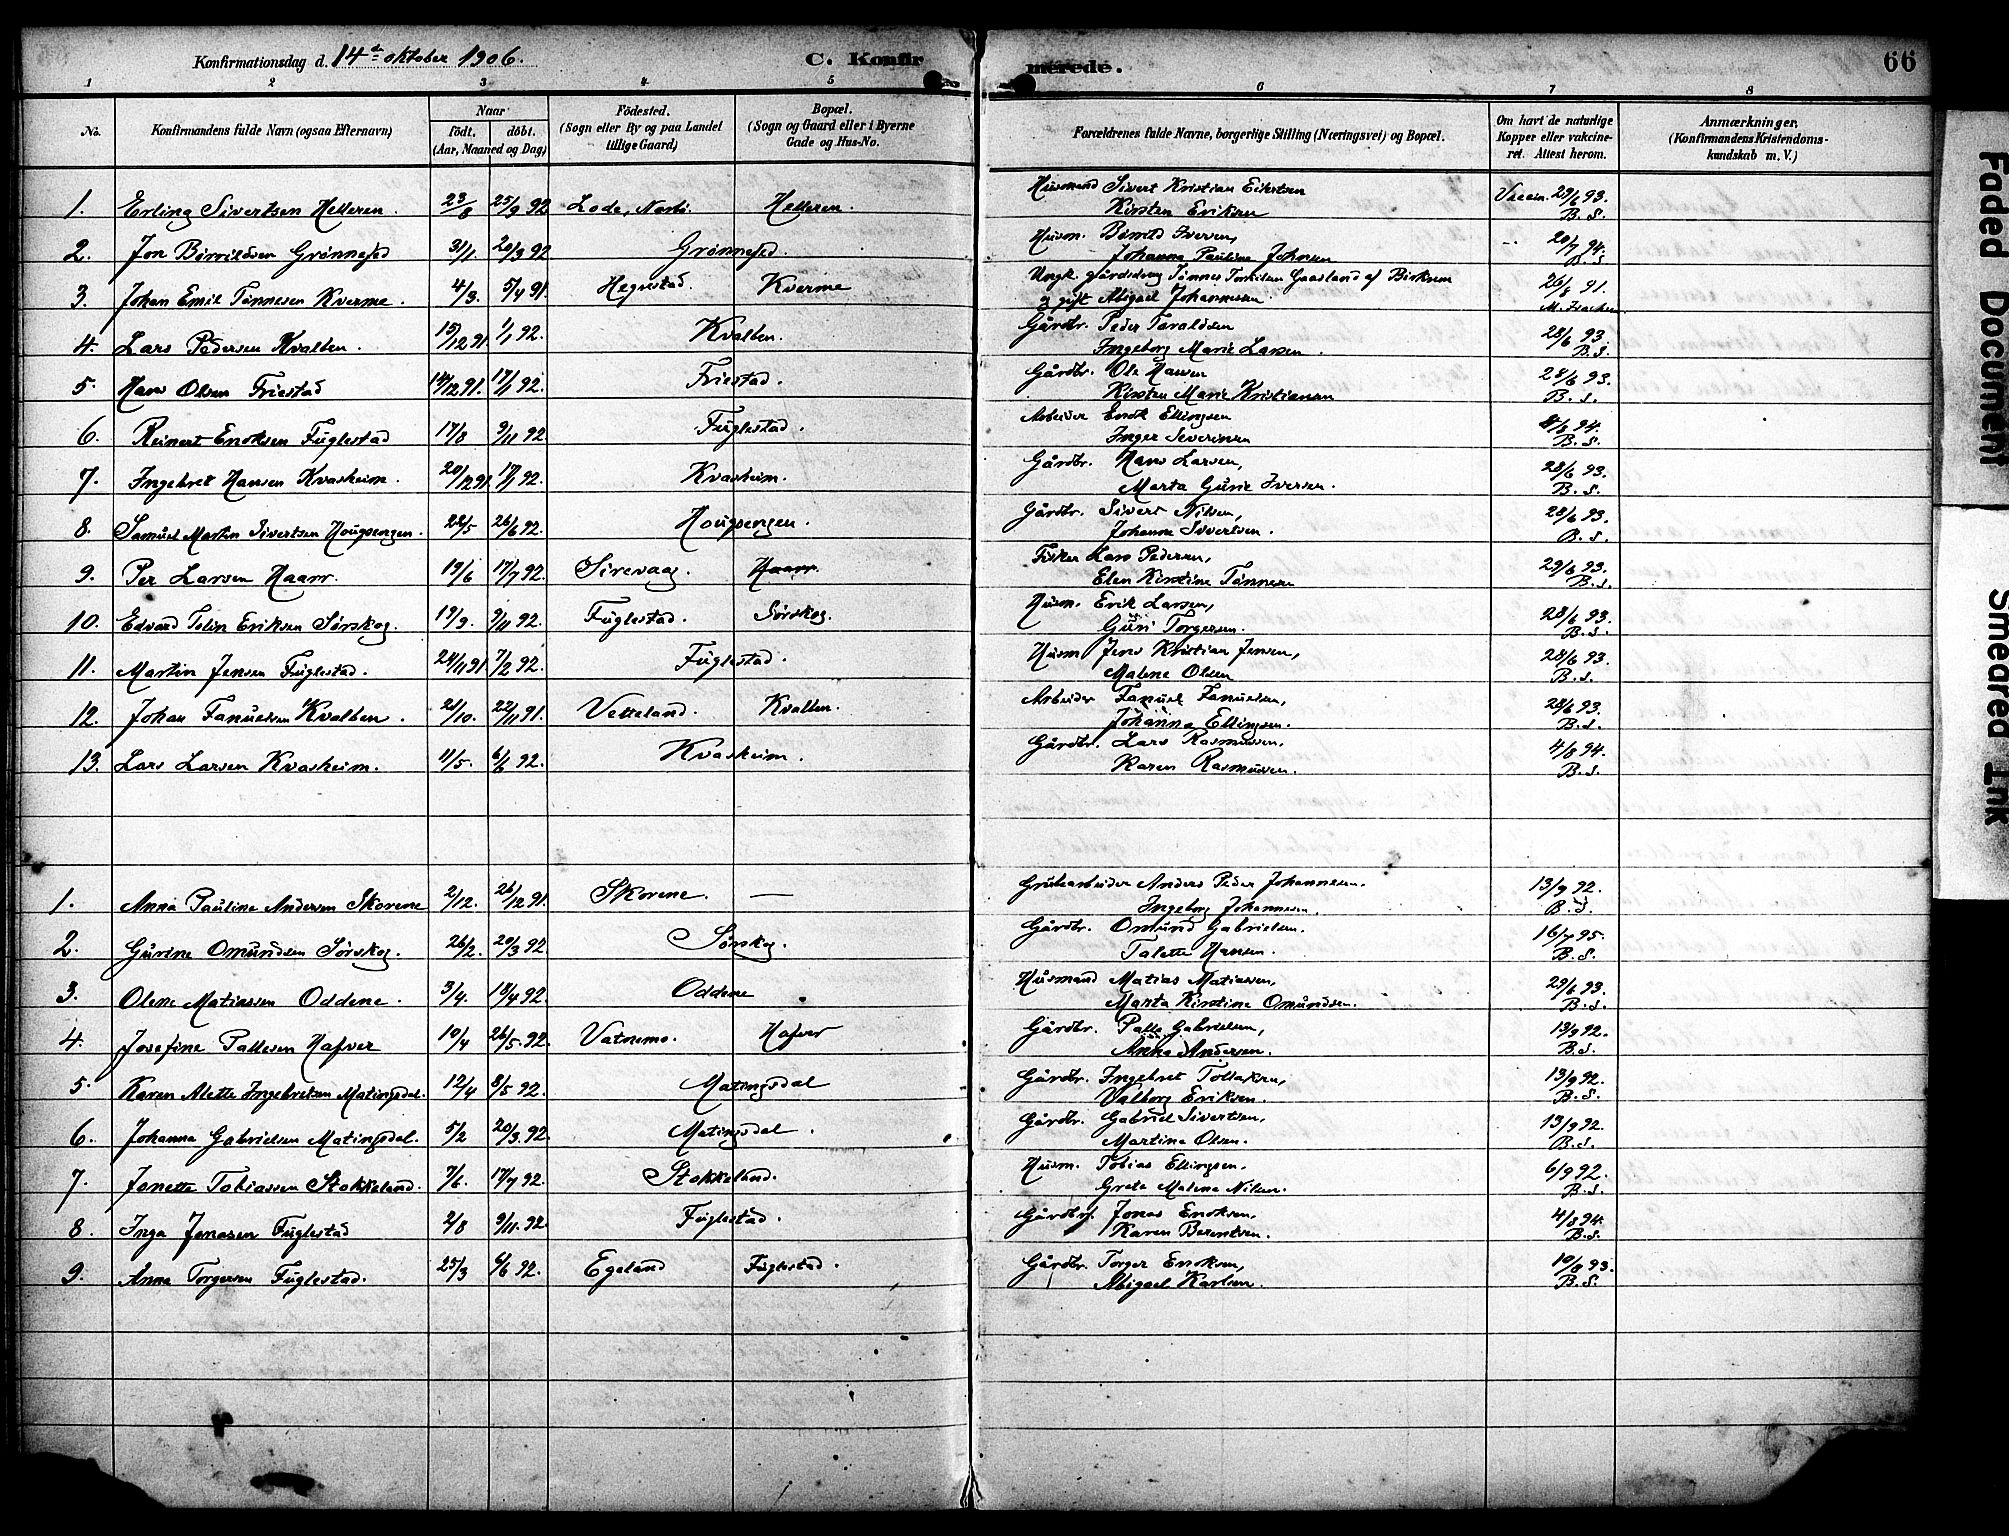 Konfirmationsdag d. 14de oktober 1906.
C. Konfirmerede.
66
1 2 3 4 5 6 7 8
No.
Konfirmandens fulde Navn (ogsaa Efternavn)
Naar
födt. döbt.
(Aar, Maaned og Dag)
Födested.
(Sogn eller By og paa Landet
tillige Gaard)
Bopæl.
(Sogn og Gaard eller i Byerne
Gade og Hus-No.
Forældrenes fulde Navne, borgerlige Stilling (Næringsvei) og Bopæl.
Om havt de naturlige
Kopper eller vakcine-
ret. Attest herom.
Anmærkninger,
(Konfirmandens Kristendoms-
kundskab m. V.)
1. Erling Sivertsen Helleren. 23/8 25/9 92 Lode, Helleren. Husmand Sivert Kristian Vaccin. 29/6 93.
Kirsten Eriksen B. S.
2. Jon Grønnesed 31/1. 20/3 92 Grønnesed. Husm. Iversen, 20/7 94.
Johanna Pauline Johnsen B. S.
3. Johan Emil Tønnesen Kverme. 4/3. 5/4 91. Hegrestad. Kverme Ungk. gårdsdreng Tønnes Gaasland af Birkrem 26/8 91.
og gift Abigael Johannesen.
4. Lars Pedersen Kvalben. 15/12 91 1/1 92. Kvalben. Gårdbr. Peder Taraldsen 28/6 93.
Ingeborg Marie Larsen. B. S.
5. Hans Olsen Friestad 14/12 91. 17/1 92. Friestad. Gårdbr. Ole Hansen 28/6 93.
Kirsten Marie Kristiansen B. S.
6. Reinert Enoksen Fuglestad 17/8 9/11 92 Fuglestad. Arbeider Enok Ellingsen 4/8 94.
Inger Severinsen B. S.
7. Ingebret Hansen Kvasheim. 20/12 91. 17/1 92. Kvasheim. Gårdbr. Hans Larsen, 28/6 93.
Marta Gurie Iversen. B. S.
8. Samuel Martin Sivertsen Hougsengen. 22/5 26/6 92. Hougsengen. Gårdbr. Sivert Nilsen, 28/6 93.
Johanna Sivertsen. B. S.
9. Per Larsen Haarr. 19/6 17/7 92. Sirevaag. Haarr. Fisker Lars Pedersen, 29/6 93.
Elen Kirstine Tønnesen B. S.
10. Edvard Eriksen Sørskog. 19/9. 9/11 92. Fuglestad. Sørskog. Husm. Erik Larsen, 28/6 93.
Guri Torgersen. B. S.
11. Martin Jensen Fuglestad. 24/11 91 7/2 92. Fuglestad. Husm Jens Kristian Jensen, 28/6 93.
Malene Olsen B. S.
12. Johan Fanuelsen Kvalben. 21/10. 22/11 91. Vetteland. Kvalben. Arbeider Fanuel Fanuelsen, 28/6 93.
Johanna Ellingsen. B. S.
13. Lars Larsen Kvasheim. 11/5. 6/6 92. Kvasheim. Gårdbr. Lars Rasmussen, 4/8 94.
Karen Rasmussen. B. S.
1. Anna Pauline Andersen Skorene 2/12. 26/12 91 Skorene. — Grubearbeider Anders Peder Johannesen. 13/9 92.
Ingeborg Johannesen. B. S.
2. Gurine Omundsen Sørskog. 26/2. 20/3 92. Sørskog. Gårdbr. Omund Gabrielsen. 16/7 95.
Talette Hansen. B. S.
3. Olene Matiassen Oddene. 3/4. 18/4 92. Oddene Husmand Matias Matiassen, 29/6 93.
Marta Kirstine Omundsen. B. S.
4. Josefine Pallesen Hafver 10/4 26/5. 92. Vatnemo. Hafver Gårdbr. Palle Gabrielsen, 13/9 92.
Anna Andersen. B. S.
5. Karen Alette Ingebretsen Matingsdal. 12/4 8/5 92. Matingsdal Gårdbr. Ingebret Tollaksen, 13/9 92.
Valborg Eriksen. B. S.
6. Johanna Gabrielsen Matingsdal. 5/2 20/3. 92. Matingsdal. Gårdbr. Gabriel Sivertsen, 13/9 92.
Martina Olsen. B. S.
7. Jonette Tobiassen Stokkeland. 7/6. 17/7 92. Stokkeland. Husm. Tobias Ellingsen. 6/9 92.
Greta Malena Nilsen. B. S.
8. Inga Jonasen Fuglestad 2/8 9/11. 92. Fuglestad. Gårdbr. Jonas Enoksen, 4/8 94.
Karen Berentsen. B. S.
9. Anna Torgersen Fuglestad. 25/3 6/6 92. Egeland Fuglestad. Gårdbr. Torger Enoksen, 10/8 93.
Abigael Karlsen. B. S.
Faded Document
Smeared Ink